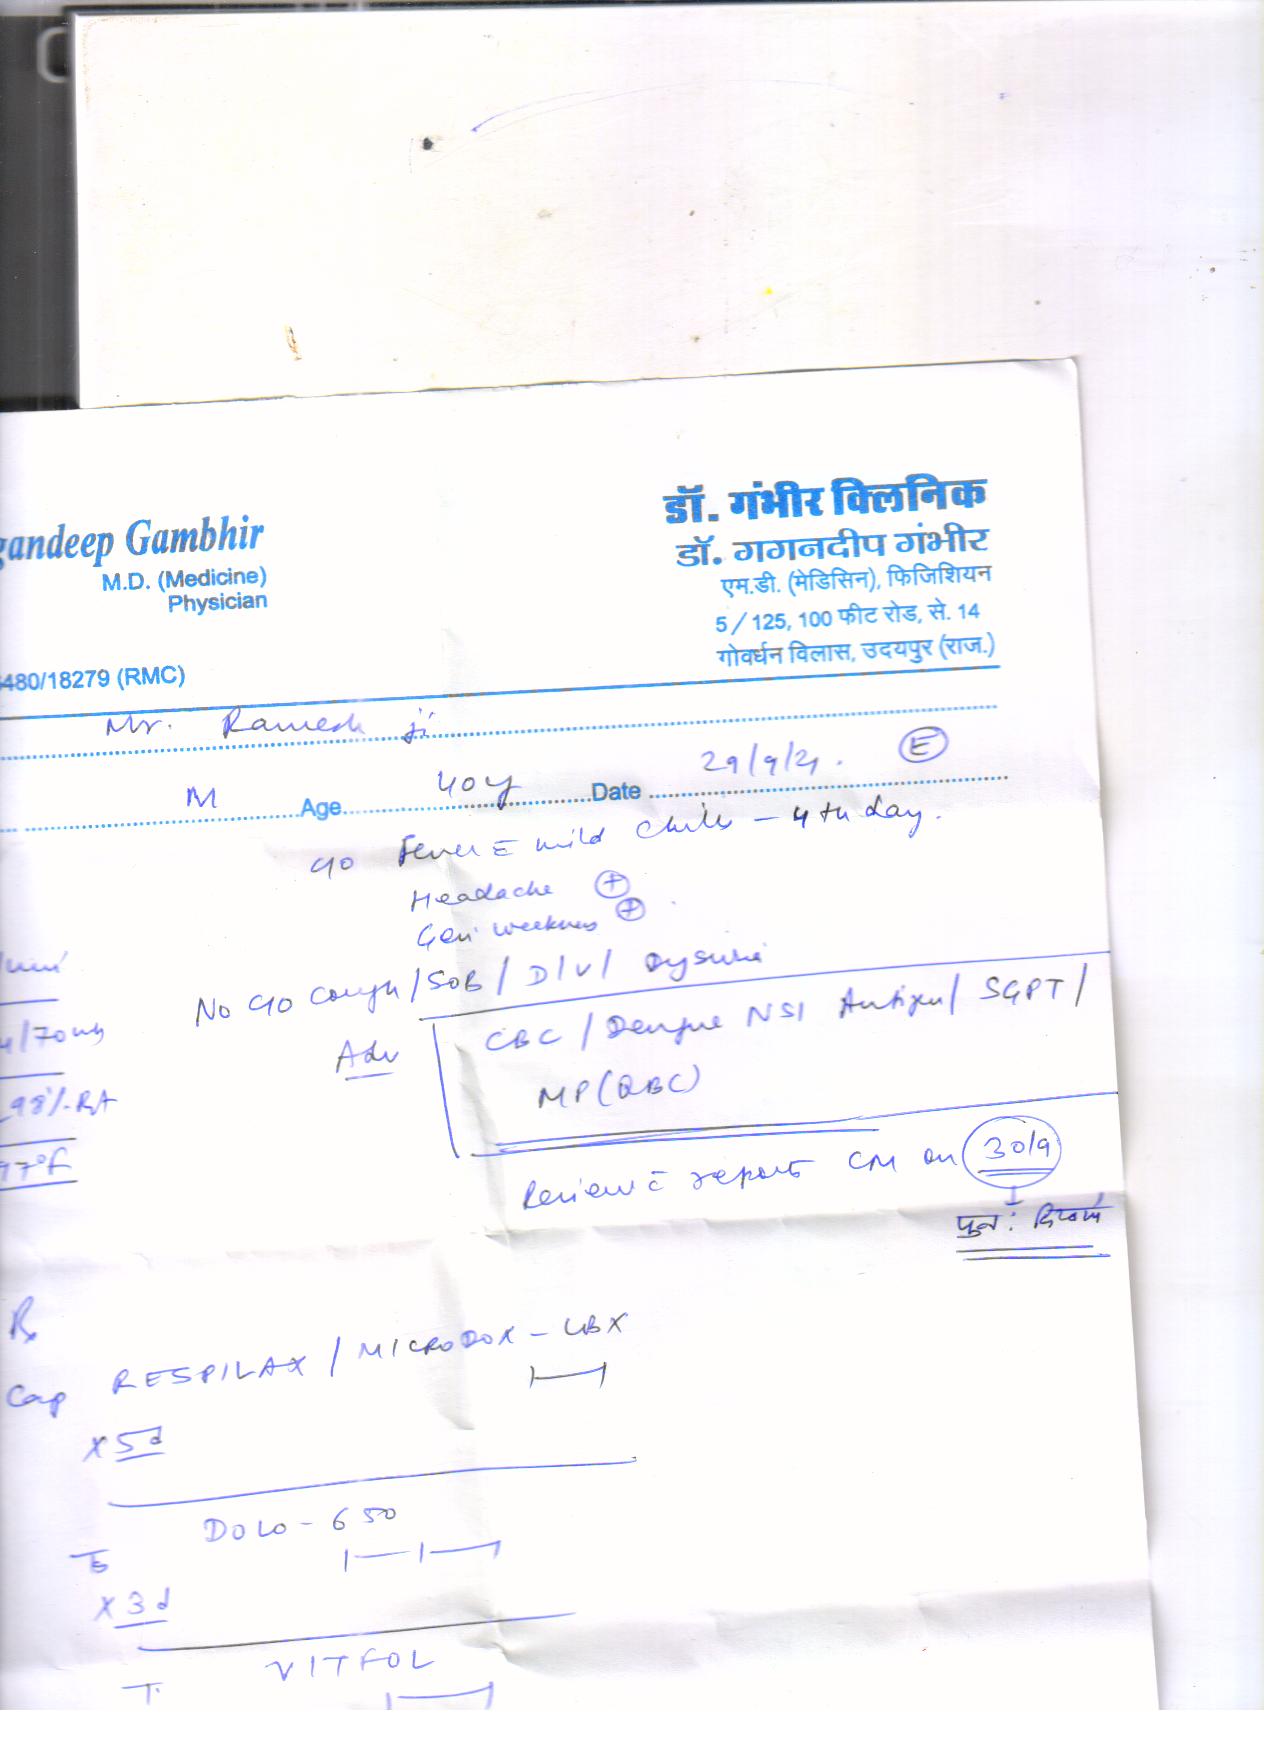 gandeep Gambhir
M.D. (Medicine)
Physician
480/18279 (RMC)
डॉ. गंभीर क्लिनिक
डॉ. गगनदीप गंभीर
एम.डी. (मेडिसिन), फिजिशियन
5/125, 100 फीट रोड, से. 14
गोवर्धन विलास, उदयपुर (राज.)
Mr. Ramesh ji
M Age 40y Date 29/9/21. E
c/o Fever c mild chills - 4th day.
Headache +
Gen weekness +
No c/o cough / SOB / D/V / Dysuria
/min
/70
98% RA
97°F
Adv CBC / Dengue NS1 Antigen / SGPT /
MP (QBC)
Review c reports CM on 30/9
पुनः दिखायें
Rx
Cap RESPILAX / MICRODOX - LBX
x 5d
T DOLO - 650
x 3d
T. VITFOL